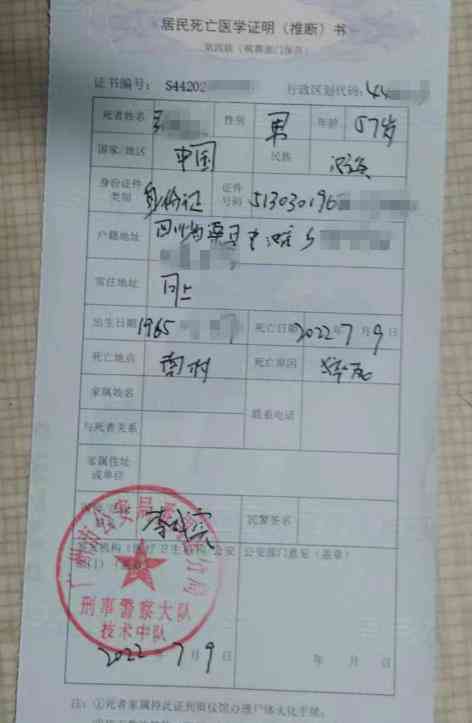 居民死亡医学证明（推断）书
第四联（殡葬部门保存）
证书编号： S44202 行政区划代码:44
死者姓名 性别 男 年龄 57岁
国家/地区 中国 民族 汉族
身份证件类别 身份证 证件号码 513030196
户籍地址 四川省渠县
常住地址 同上
出生日期 1965 死亡日期 2022年7月9日
死亡地点 南村 死亡原因 猝死
家属姓名 联系电话
与死者关系
家属住址或单位
民警签名
公安部门意见（盖章）
广州市公安局 分局
刑事警察大队
技术中队
2022年7月9日 年 月 日
注：①死者家属持此证到殡仪馆办理尸体火化手续。